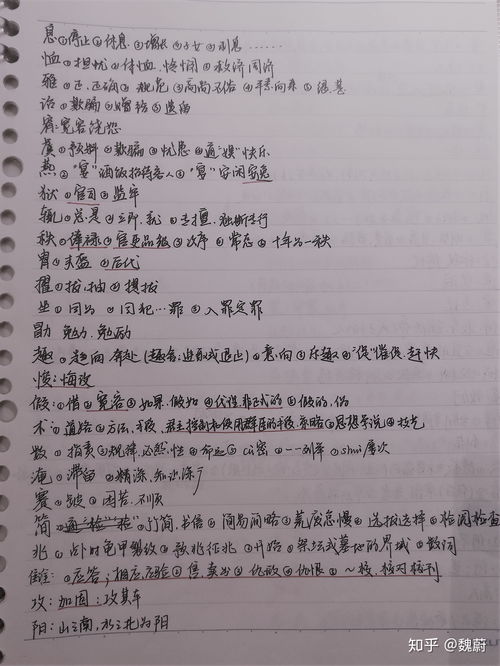 息①停止②休息③增长④子女⑤利息……
恤①担忧②体恤,怜悯③救济周济
雅①正,正确②规范③高尚不俗④平素向来⑤很,甚
诒①欺骗②赠给③遗留
宥:宽容饶恕
虞①预料②欺骗③忧患④通"娱"快乐
①"宴"酒饭招待客人②"宴"安闲安逸
狱①官司②监牢
辄①总是②立即,就③专擅,独断专行
秩①俸禄②官吏品级③次序④常态⑤十年为一秩
胄①头盔②后代
擢①拔,抽②提拔
坐①因为②因犯…罪③入罪定罪
勖 勉力,勉励
趣①趋向,奔赴(趣舍:进取或退止)②意向③乐趣④"促"催促,赶快
悛:悔改
假①借②宽容③如果,假如④代理,非正式的⑤假的,伪
术①道路②方法,手段,君主控制和使用群臣的手段,策略③思想学说④技艺
数①指责②规律,必然性③命运④cù密⑤一一列举⑥shuò屡次
淹①滞留②精深,知识深广
蹇①跛②困苦,不顺
简①竹简,书信②简易简略③荒废怠慢④选拔选择⑤检阅检查
兆①占卜时龟甲裂纹②预兆征兆③开始④祭坛或墓地的界域⑤数词
雠①应答;相应,应验②售,卖出③仇敌④仇恨⑤~校,校对校刊
攻:加固:攻其车
阳:山之南,水之北为阳
知乎 @魏蔚